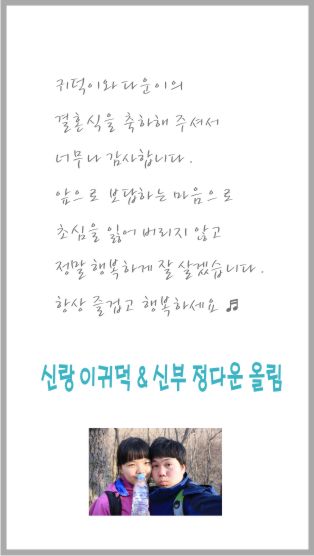 귀덕이와 다운이의
결혼식을 축하해 주셔서
너무나 감사합니다.
앞으로 보답하는 마음으로
초심을 잃어 버리지 않고
정말 행복하게 잘 살겠습니다.
항상 즐겁고 행복하세요 ♬
신랑 이귀덕 & 신부 정다운 올림